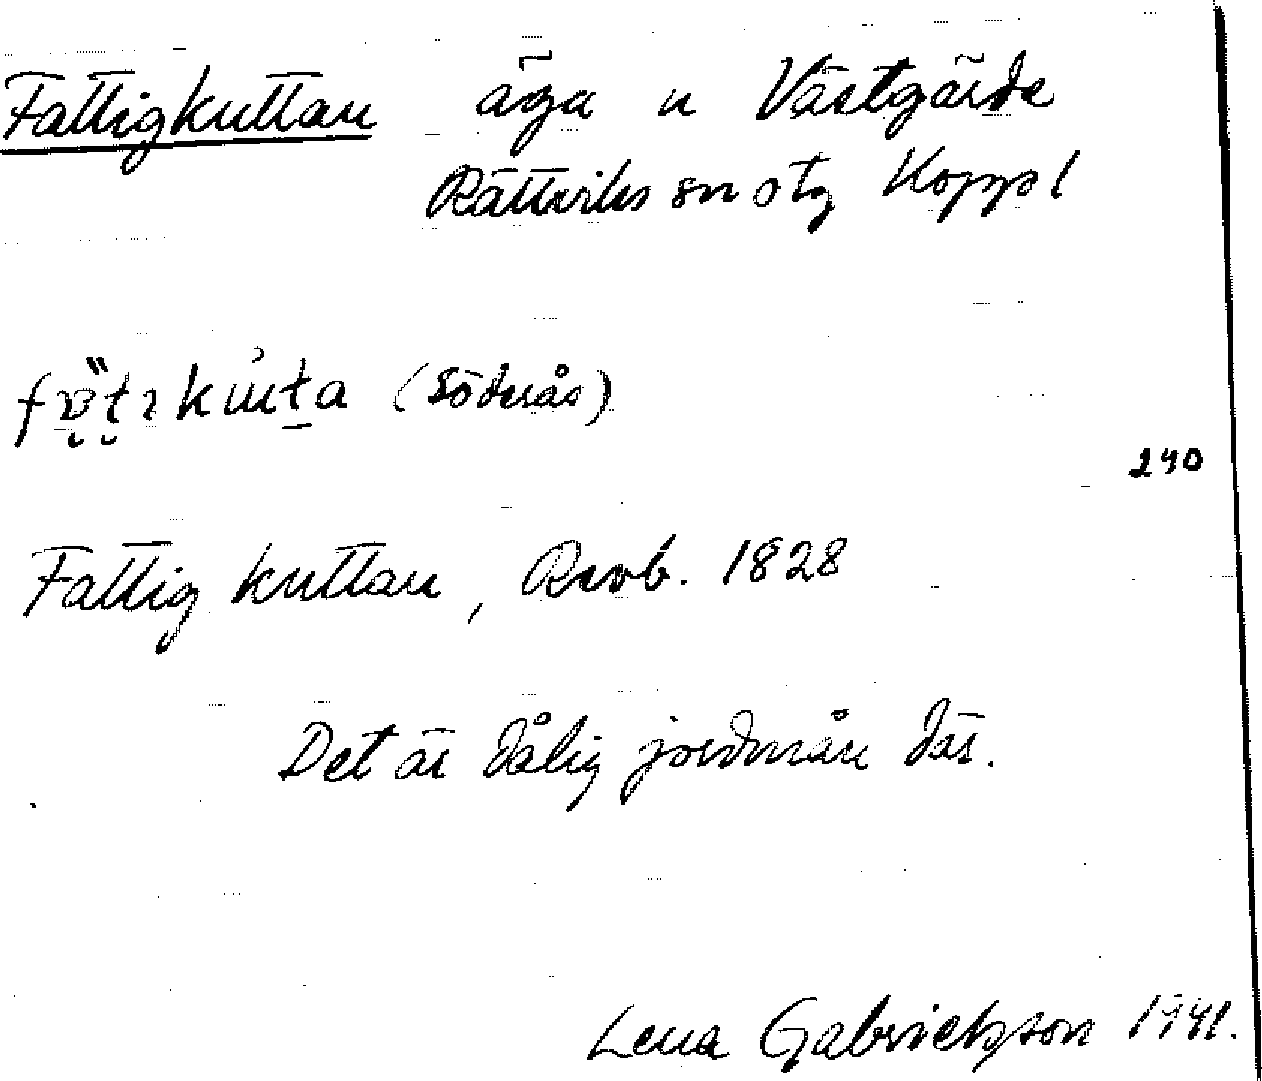 Fattigkuttan äga n Västgärde
Rättviks sn o tg Koppl
(Söderås)
240
Fattig kuttan, Revb. 1828
Det är dålig jordmån där.
Lena Gabrielsson 1941.